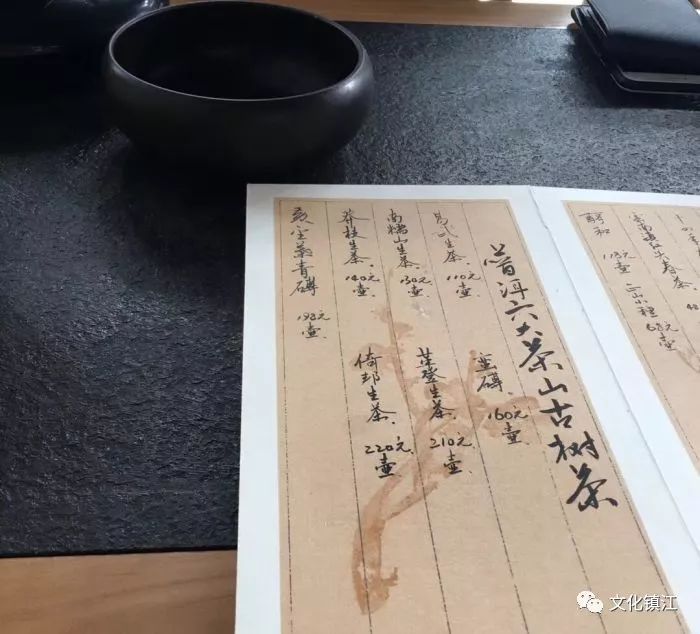 普洱六大茶山古树茶
易武生茶 110元 壶
蛮磚 160元 壶
南糯山生茶 130元 壶
革登生茶 210元 壶
莽枝生茶 140元 壶
倚邦生茶 220元 壶
青磚 198元 壶
正山小種 68元 壶
118元 壶
文化镇江